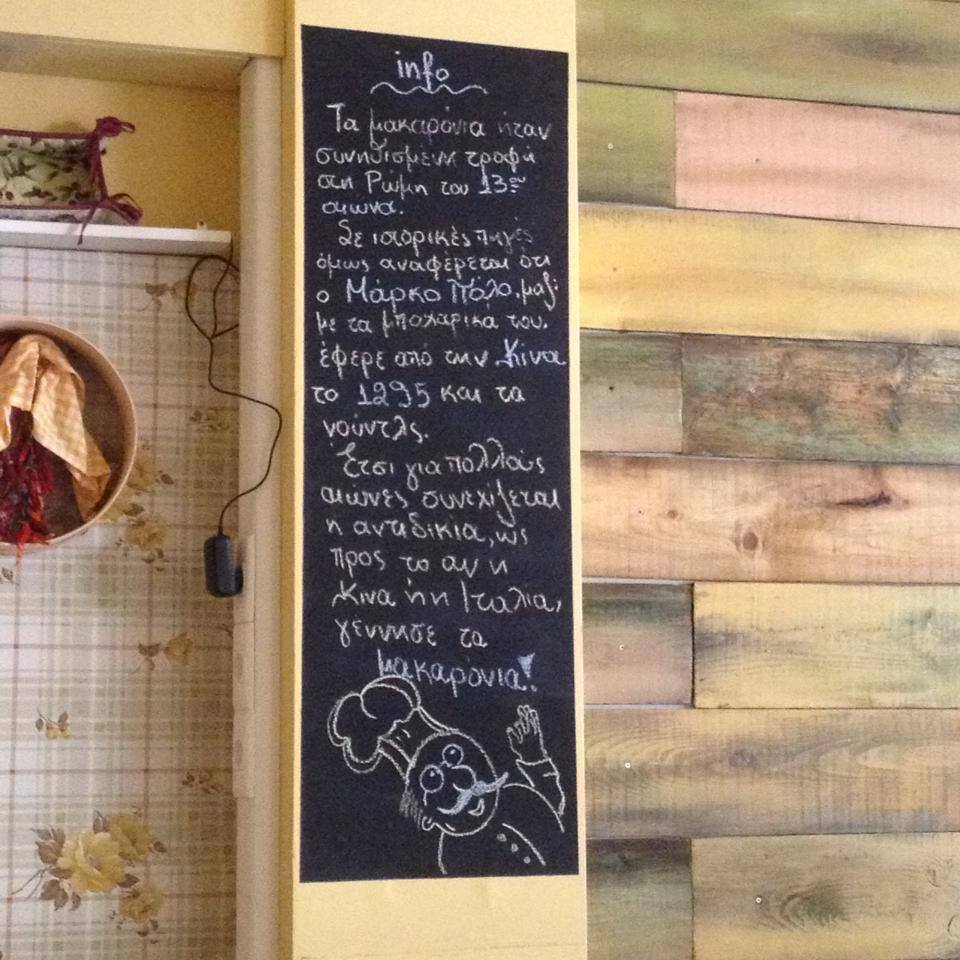 info
Τα μακαρόνια ήταν
συνηθισμενη τροφή
στη Ρώμη του 13ου
αιωνα.
Σε ιστορικές πηγές
όμως αναφερεται ότι
ο Μάρκο Πόλο, μαζί
με τα μπαχαρικά του,
έφερε από την Κίνα
το 1295 και τα
νούντλς.
Έτσι για πολλούς
αιώνες συνεχίζεται
η αντιδικία, ως
προς το αν η
Κινα ή η Ιταλία,
γέννησε τα
μακαρόνια!